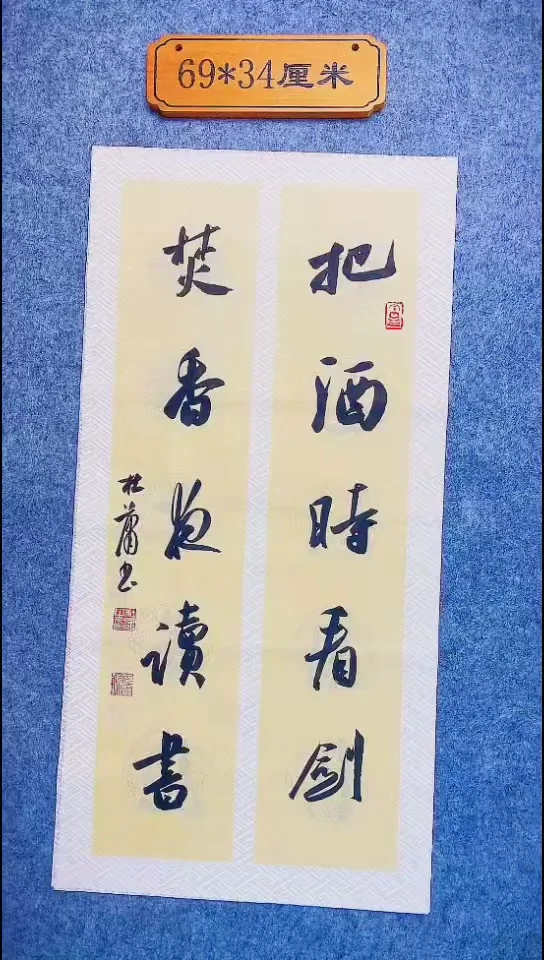 69*34厘米
把酒時看劍
焚香夜讀書
杜蕭书